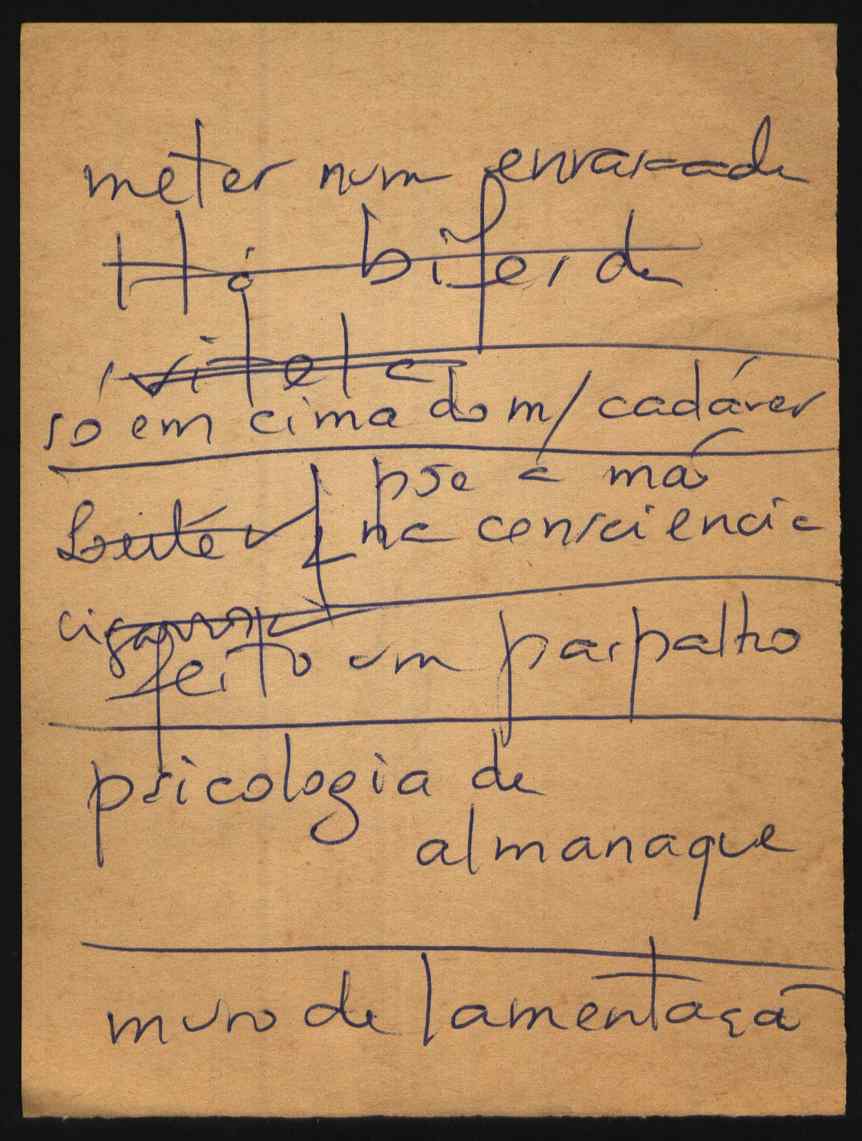 meter num
Há bifes de
vitela
só em cima do m/ cadáver
pse a mã
Leite na consciencia
cigarros
feito um parpalho
psicologia de
almanaque
muro de lamentaçã